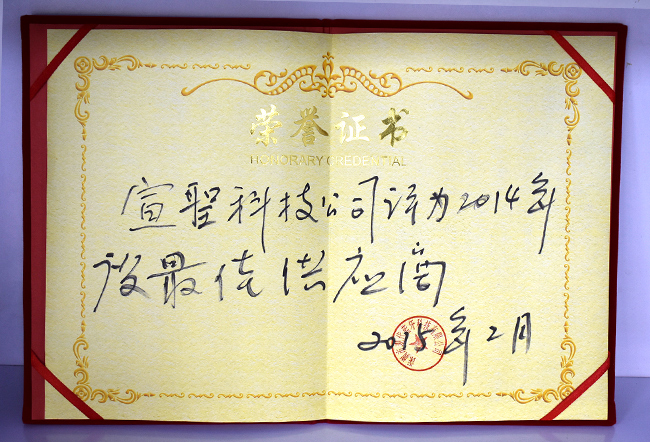 荣誉证书
HONORARY CREDENTIAL
宣聖科技公司评为2014年
最佳供应商
2015年2月